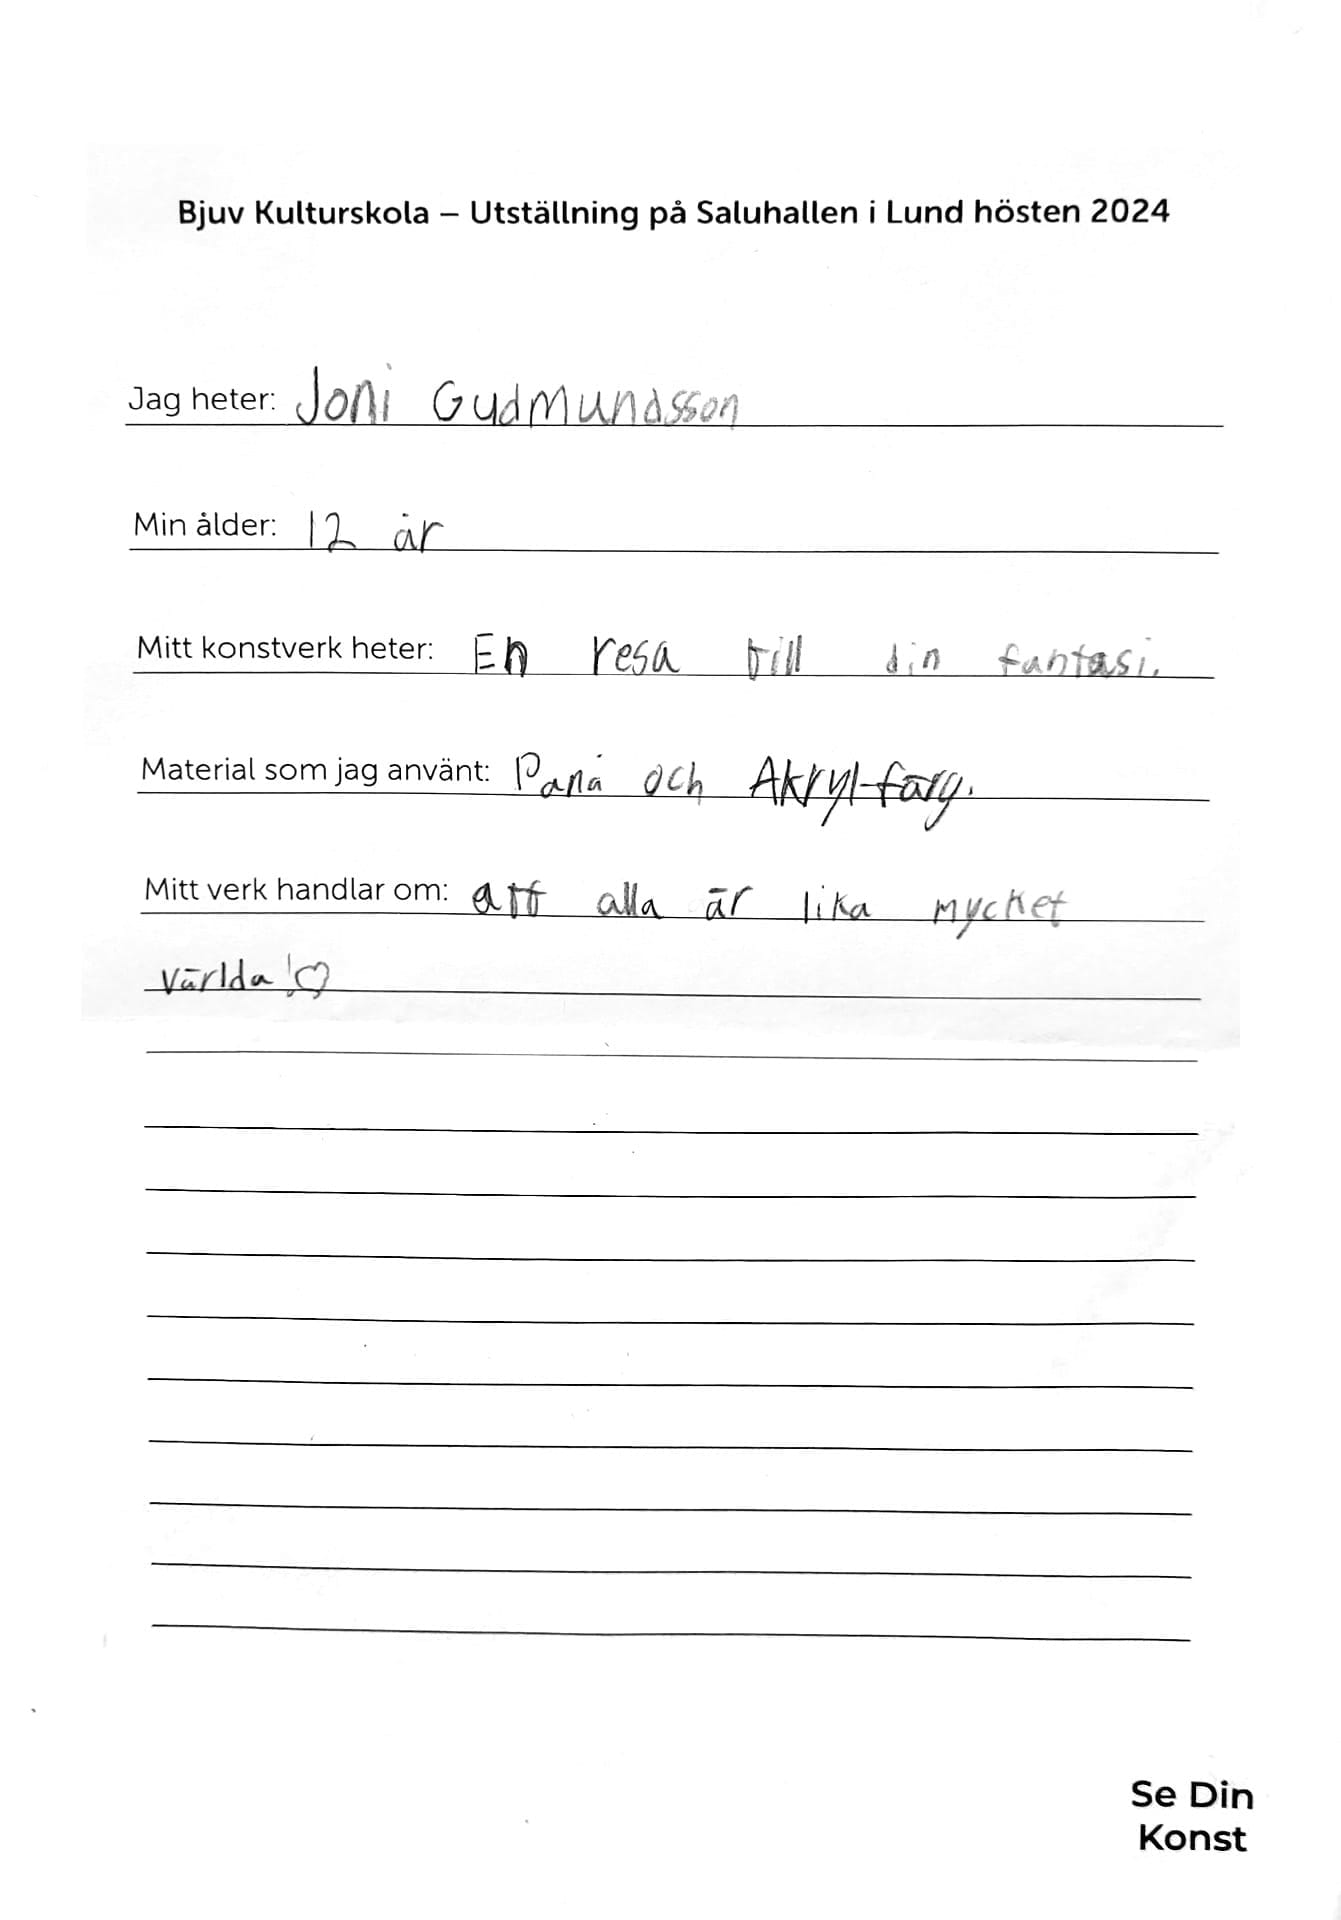 Bjuv Kulturskola – Utställning på Saluhallen i Lund hösten 2024
Jag heter: Joni Gudmundsson
Min ålder: 12 år
Mitt konstverk heter: En resa till din fantasi.
Material som jag använt: Panå och Akryl-färg.
Mitt verk handlar om: att alla är lika mycket
världa!♡
Se Din
Konst